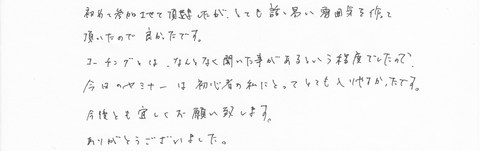 初めて参加させて頂きましたが、とても話し易い雰囲気を作って
頂いたので良かったです。
コーチングとは、なんとなく聞いた事があるという程度でしたので、
今日のセミナーは初心者の私にとってとても入りやすかったです。
今後とも宜しくお願い致します。
ありがとうございました。